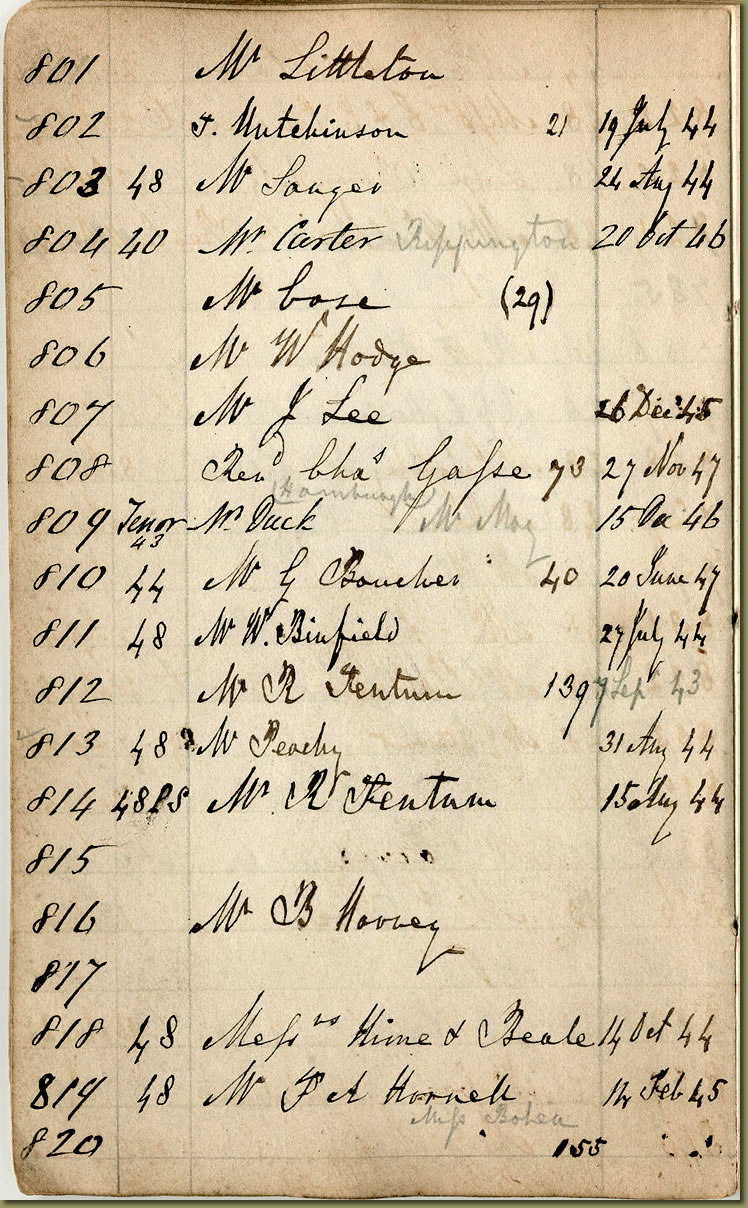 801 Mr Littleton
802 T. Hutchinson 21 19 July 44
803 48 Mr Sanger 24 Aug 44
804 40 Mr Carter Rippington 20 Oct 46
805 Mr Case (29)
806 Mr W Hodge
807 Mr J Lee 26 Dec 45
808 Revd Chas Gasse 73 27 Nov 47
Hamburgh
809 Tenor 43 Mr Duck Mr May 15 Dec 46
810 44 Mr G Boucher 40 20 June 47
811 48 Mr W. Binfield 27 July 44
812 Mr R Fentum 139 7 Sepr 43
813 48 ? Mr Peachy 31 Aug 44
814 48 Mr R Fentum 15 Aug 44
815
816 Mr B
817
818 48 Messrs Hime & Beale 14 Oct 44
819 48 Mr P A Horrell 14 Feb 45
Miss
820 155